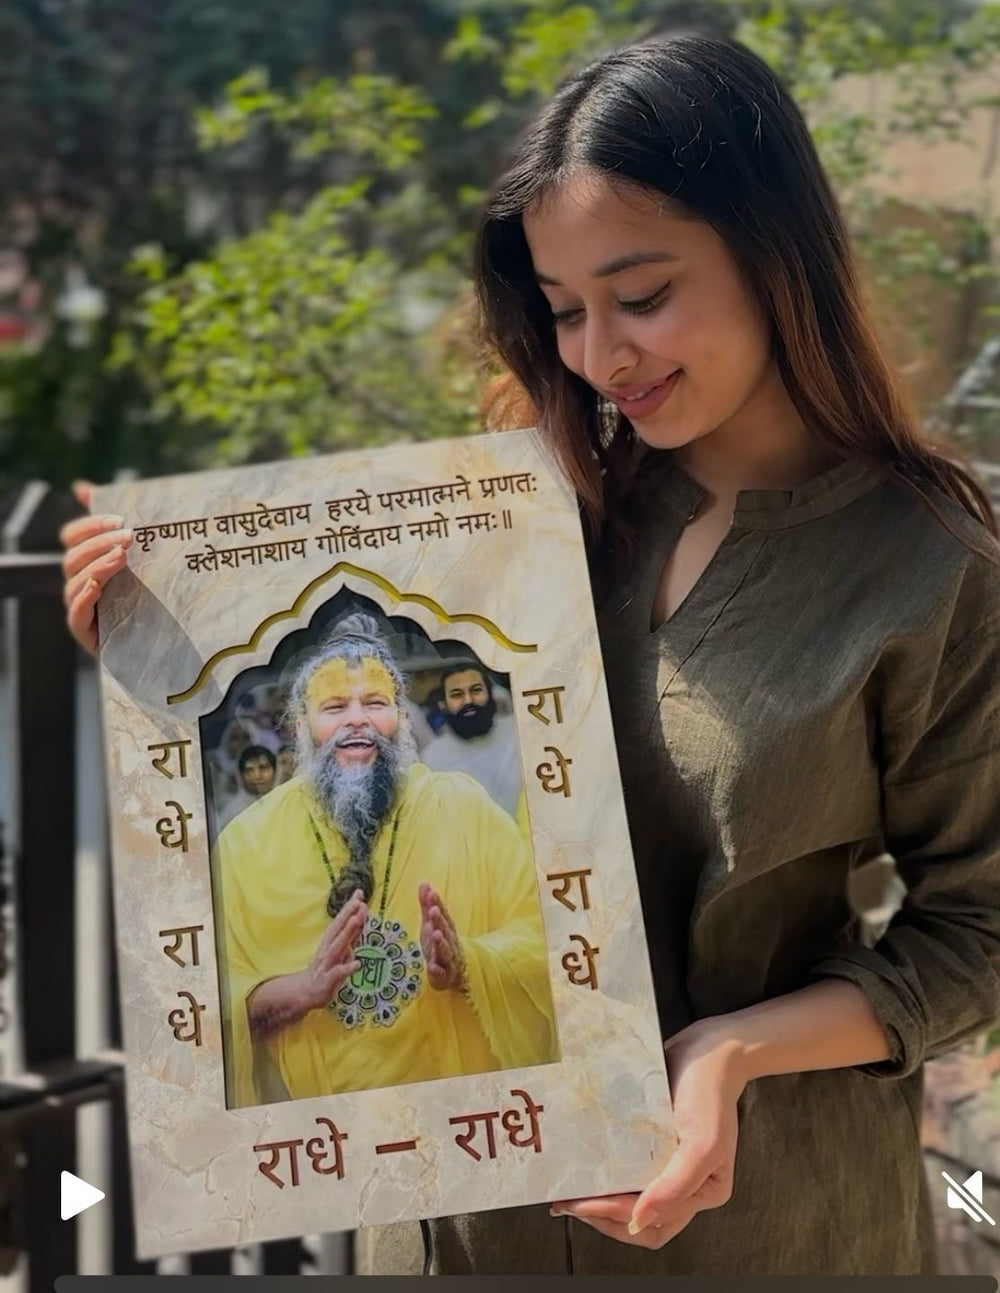 कृष्णाय वासुदेवाय हरये परमात्मने प्रणतः
क्लेशनाशाय गोविंदाय नमो नमः॥
रा
धे
रा
धे
रा
धे
रा
धे
राधा
राधे – राधे